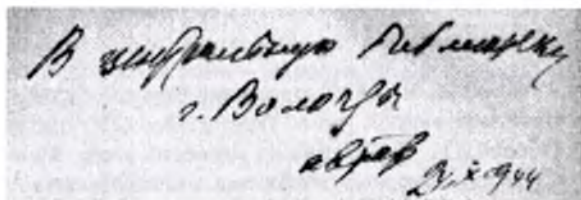 В центральную библиотеку
г. Вологды
автор
X 1944